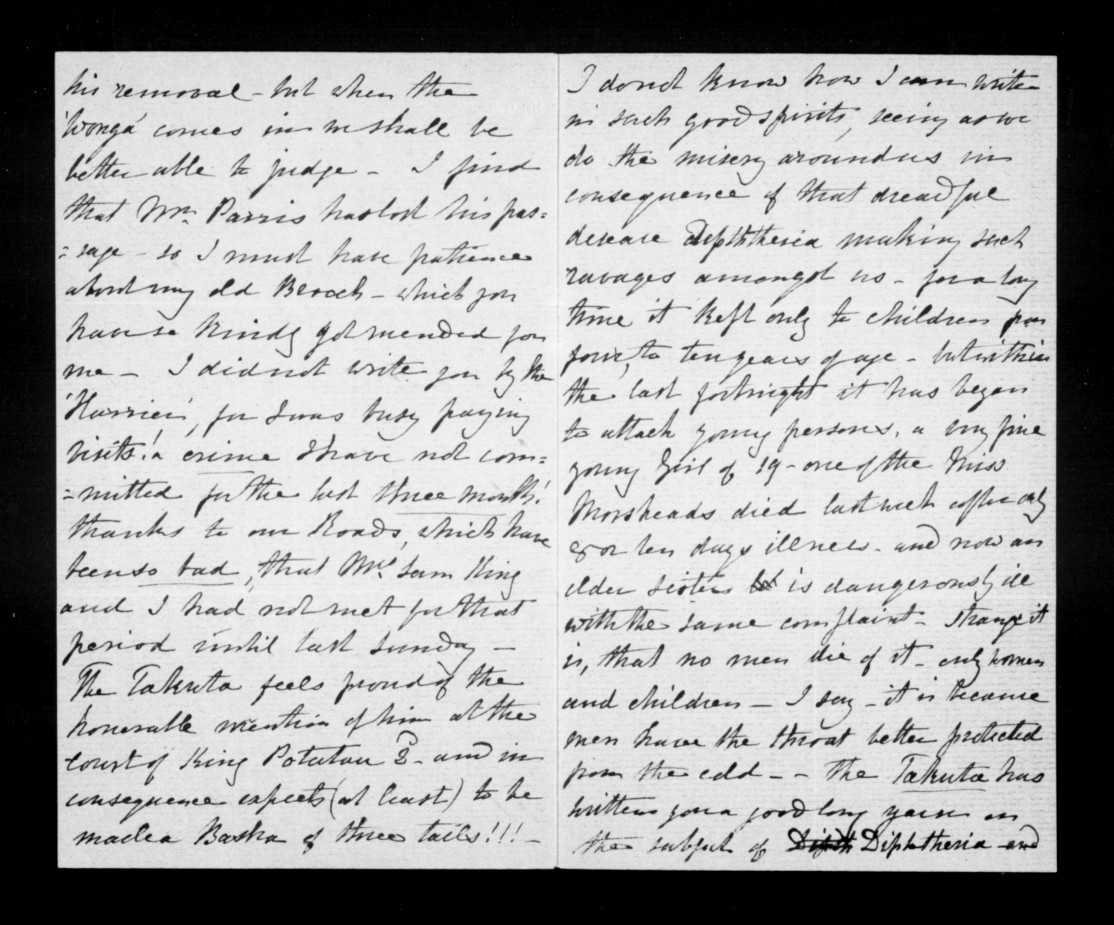 his removal - but when the
'Wonga' comes in we shall be
better able to judge - I find
that Mr. Parris has lost his pas:
:sage - so I must have patience
about my old Brooch - which you
have so kindly got mended for
me - I did not write you by the
'Harrier', for I was busy paying
visits! a crime I have not com:
:mitted for the last three months!
thanks to our Roads, which have
been so bad, that Mrs. Sam King
and I had not met for that
period until last Sunday -
The Takuta feels proud of the
honorable mention of him at the
court of King Potatau 2. and in
consequence expects (at least) to be
made a Basha of three tails!!! -
I do not know how I can write
in such good spirits, seeing as we
do the misery around us in
consequence of that dreadful
desease Diphtheria making such
ravages amongst us - for a long
time it kept only to children from
four, to ten years of age - but within
the last fortnight it has began
to attack young persons, a very fine
young Girl of 19 - one of the Miss
Morsheads died last week after only
8 or ten days illness - and now an
elder sister is dangerously ill
with the same complaint - strange it
is, that no men die of it - only women
and children - I say - it is because
men have the throat better protected
from the cold - - The Takuta has
written you a good long yarn on
the subject of Diph Diphtheria and